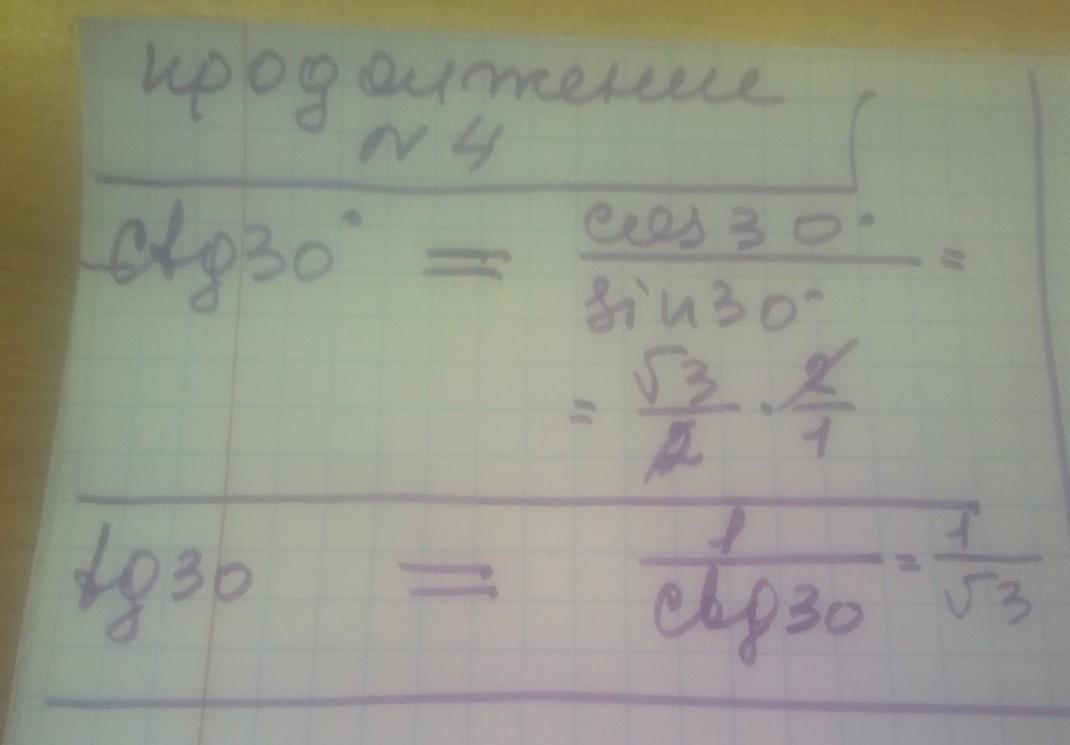 продолжение
№ 4
ctg30° = cos30° / sin30° =
= √3/2 · 2/1
tg30 = 1 / ctg30 = 1/√3